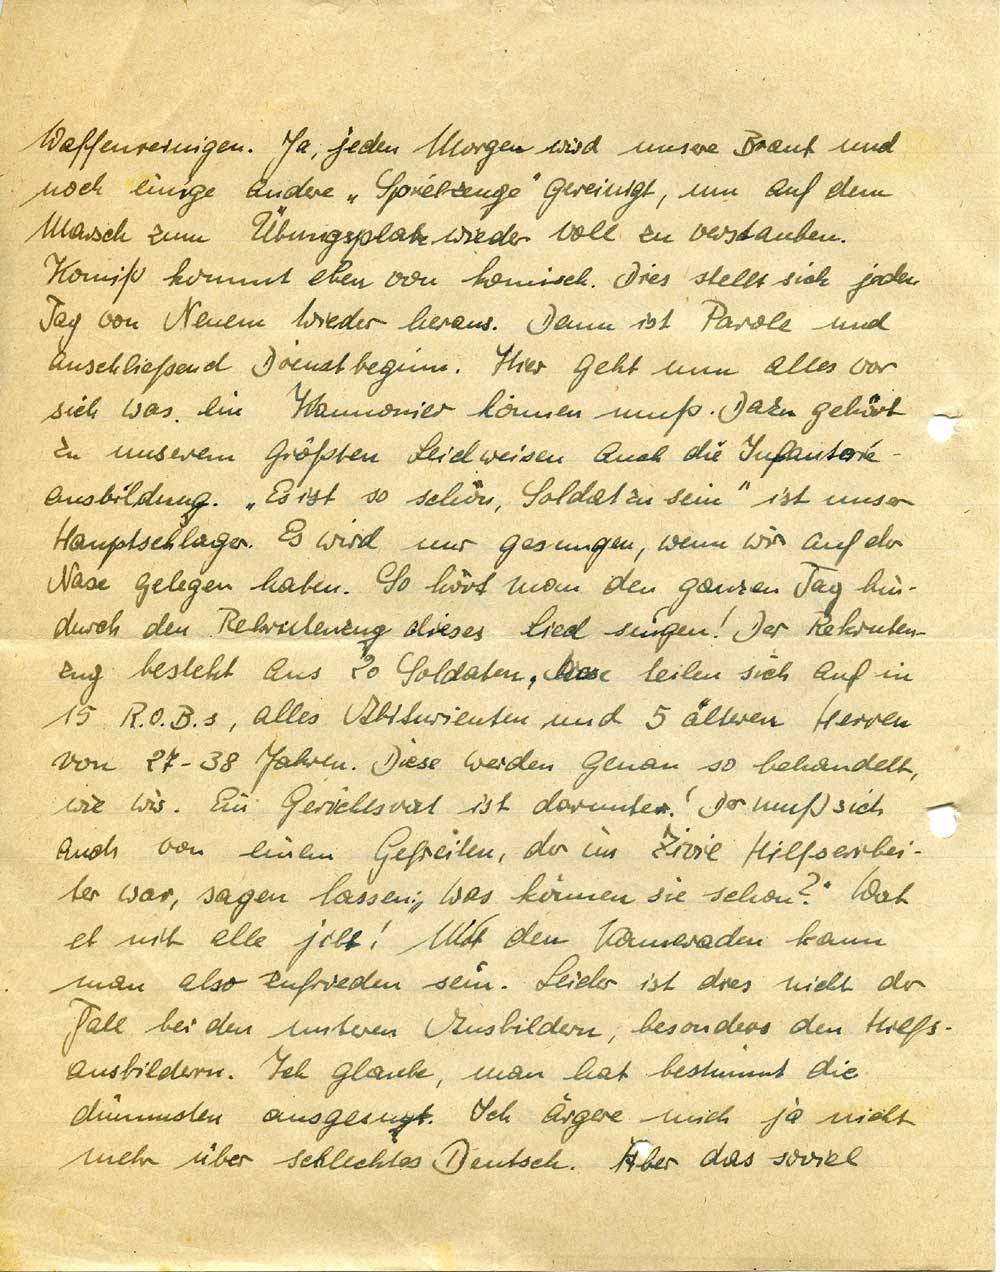 Waffenreinigen. Ja, jeden Morgen wird unsere Braut und
noch einige andere „Spielzeuge" gereinigt, um auf dem
Marsch zum Übungsplatz wieder voll zu verstauben.
Komiß kommt eben von komisch. Dies stellt sich jeden
Tag von Neuem wieder heraus. Dann ist Parole und
anschließend Dienstbeginn. Hier geht nun alles vor
sich was ein Kannonier können muß. Dazu gehört
zu unserem größten Leidweisen auch die Infanterie-
ausbildung. „Es ist so schön, Soldat zu sein" ist unser
Hauptschlager. Es wird nur gesungen, wenn wir auf der
Nase gelegen haben. So hört man den ganzen Tag hin-
durch den Rekrutenzug dieses Lied singen! Der Rekruten-
zug besteht aus 20 Soldaten, diese teilen sich auf in
15 R.O.B.s, alles Abiturienten und 5 älteren Herren
von 27-38 Jahren. Diese werden genau so behandelt,
wie wir. Ein Gerichtsrat ist darunter! Der muß sich
auch von einem Gefreiten, der im Zivil Hilfsarbei-
ter war, sagen lassen: „Was können sie schon?" Wat
et nit alle jitt! Mit den Kameraden kann
man also zufrieden sein. Leider ist dies nicht der
Fall bei den unteren Ausbildern, besonders den Hilfs-
ausbildern. Ich glaube, man hat bestimmt die
dümmsten ausgesucht. Ich ärgere mich ja nicht
mehr über schlechtes Deutsch. Aber das soviel